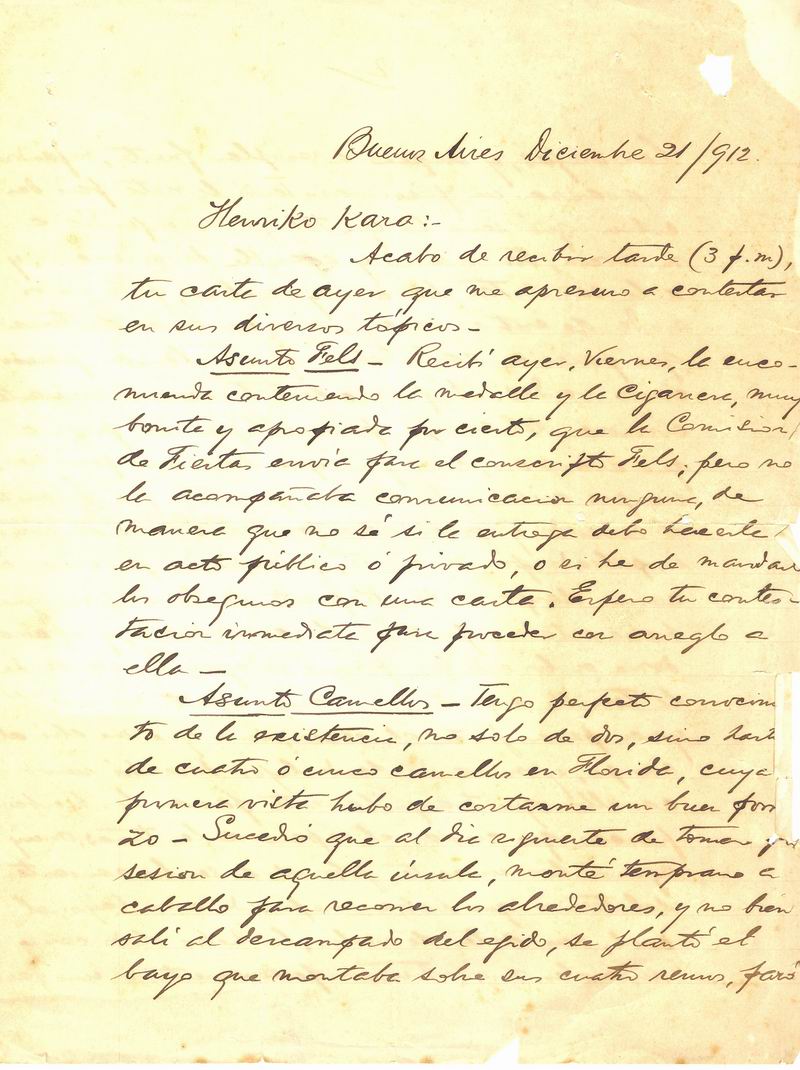 Buenos Aires Diciembre 21/912.
Henriko Kara:-
Acabo de recibir tarde (3 p.m),
tu carta de ayer que me apresuro a contestar
en sus diversos tópicos -
Asunto Fels - Recibí ayer, Viernes, la enco-
mienda conteniendo la medalla y la cigarrera, muy
bonita y apropiada por cierto, que la Comision
de Fiestas envía para el conscripto Fels; pero no
la acompañaba comunicacion ninguna, de
manera que no sé si la entrega debo hacerla
en acto público ó privado, o si he de mandar
los obsequios con una carta. Espero tu contes-
tacion inmediata para proceder con arreglo a
ella -
Asunto Camellos - Tengo perfecto conocim
to de la existencia, no solo de dos, sino hast
de cuatro ó cinco camellos en Florida, cuya
primera vista hubo de costarme un buen porr
zo - Sucedió que al dia siguiente de tomar po
sesion de aquella ínsula, monté temprano a
caballo para recorrer los alrededores, y no bien
salí al descampado del egido, se plantó el
bayo que montaba sobre sus cuatro remos, paró